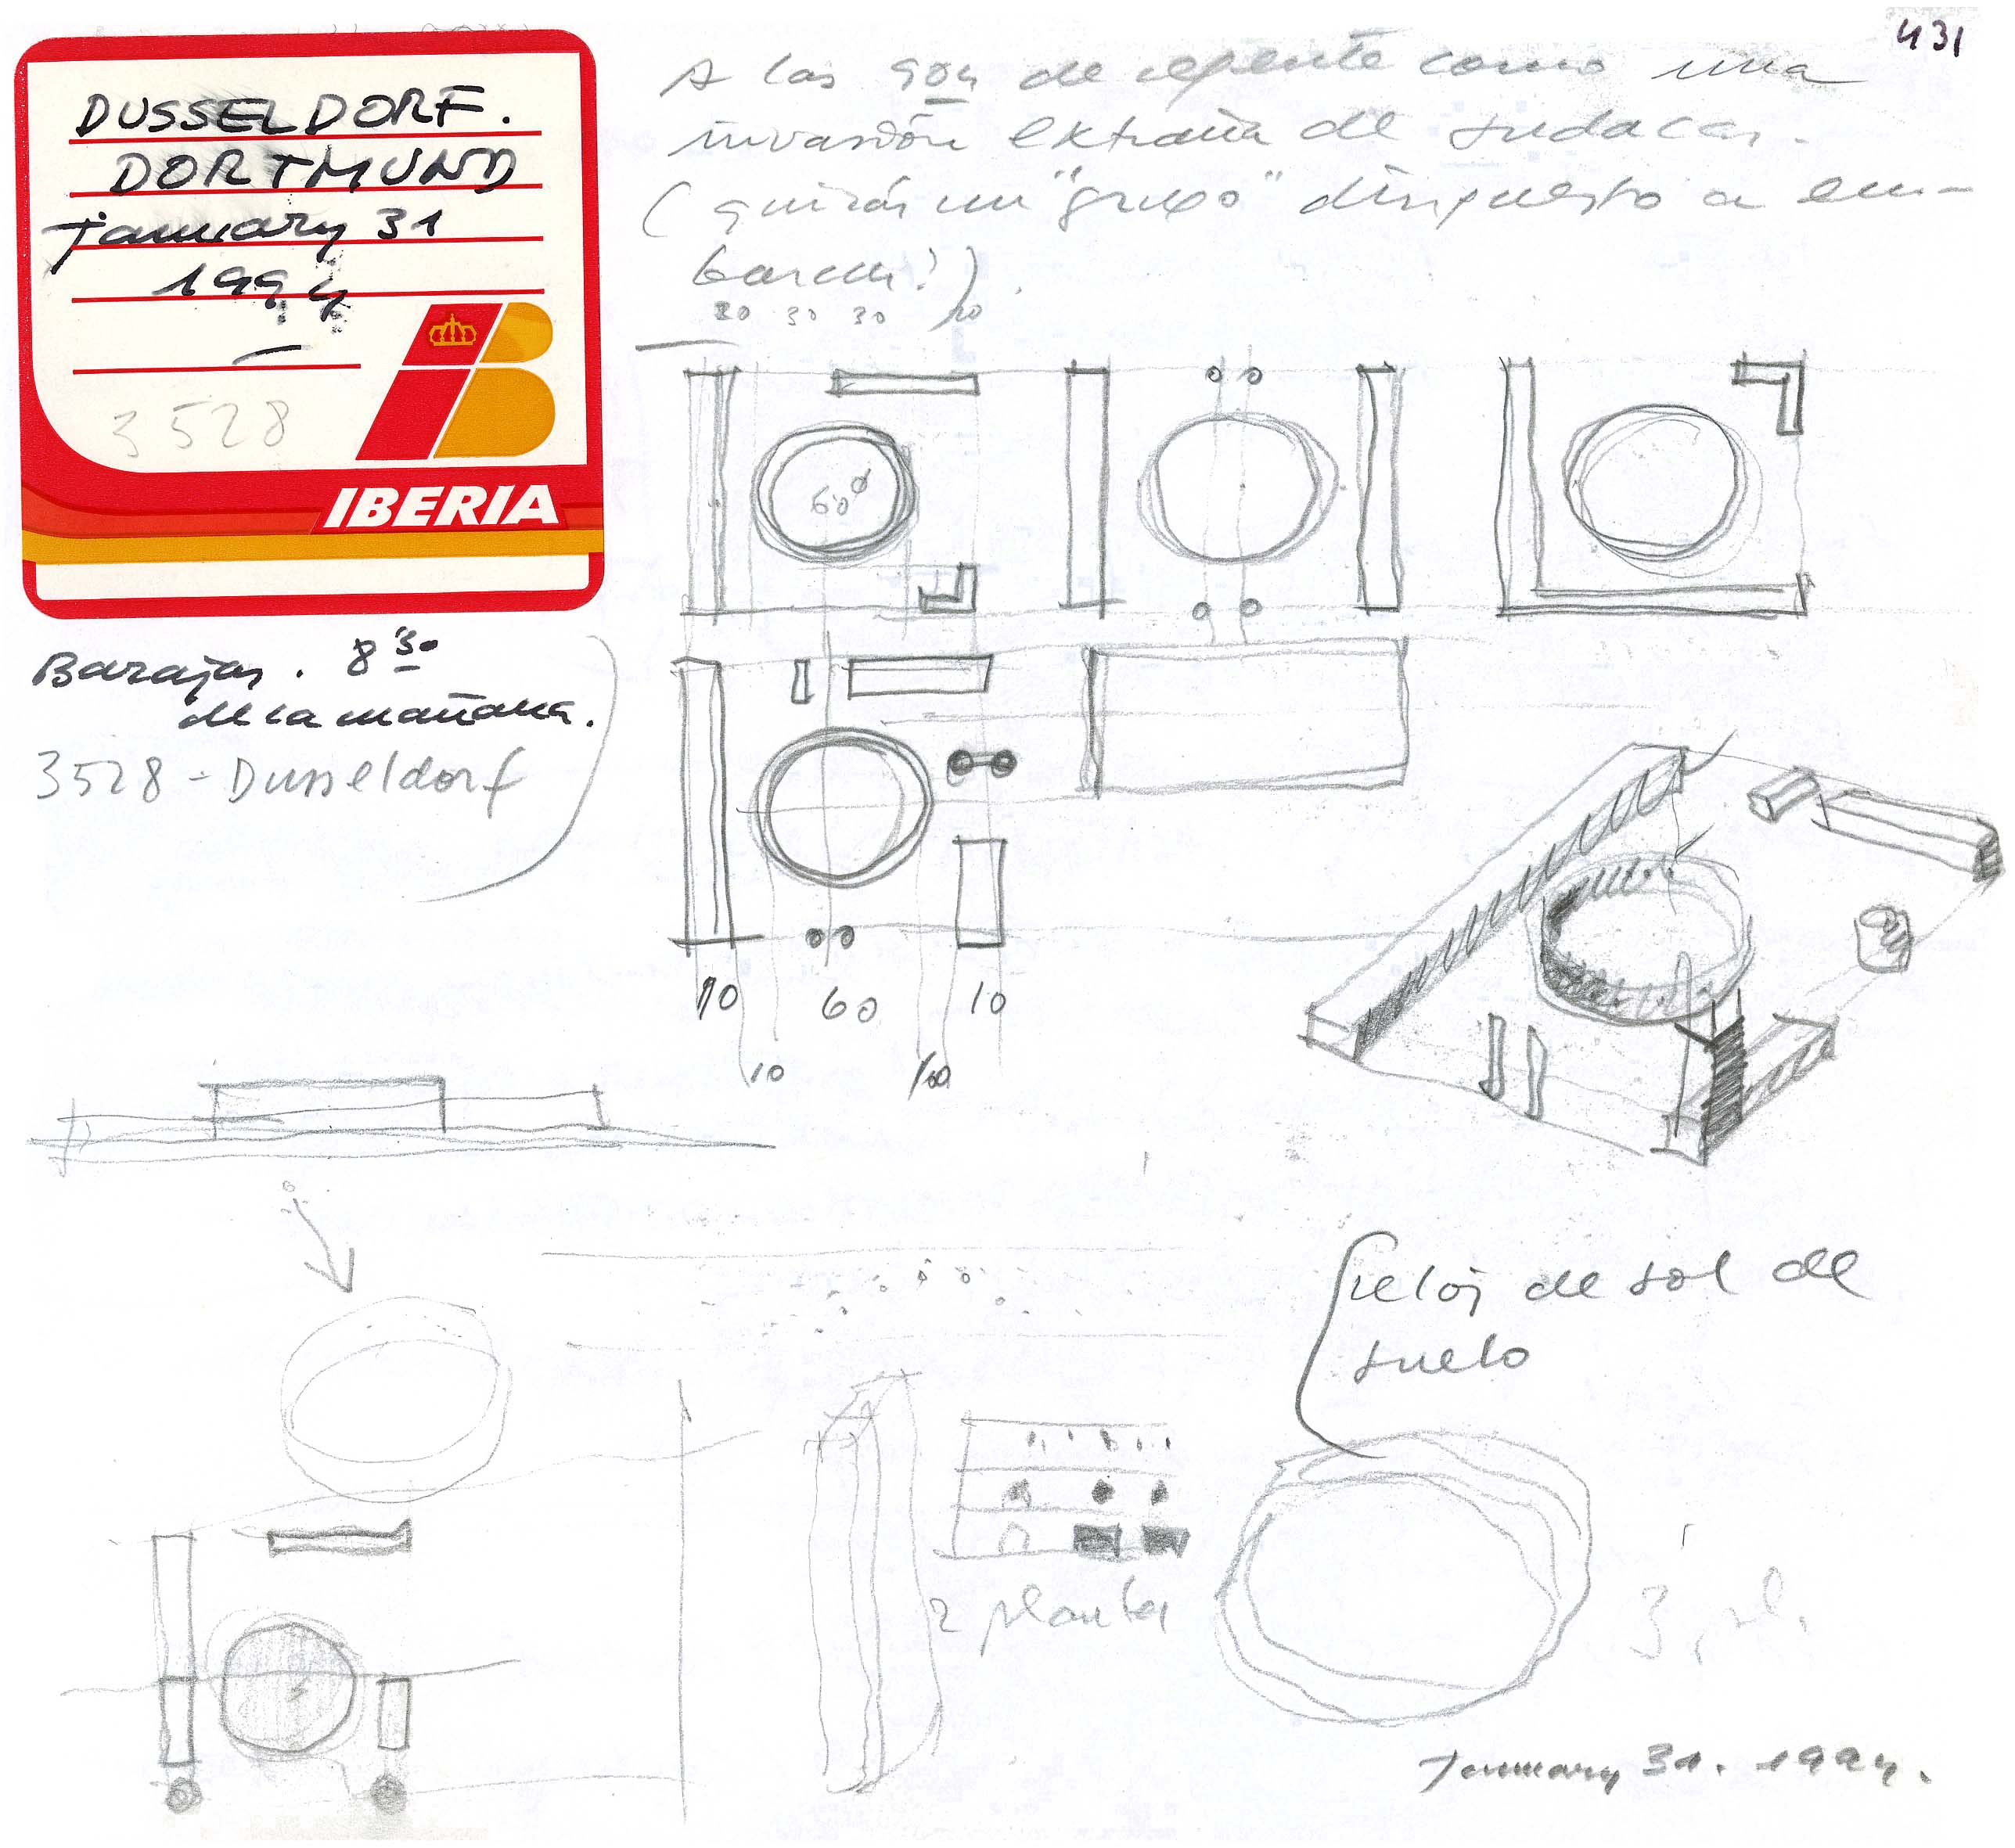 431
DUSSELDORF.
DORTMUND
january 31
1994
3528
IBERIA
Barajas. 8 30
de la mañana.
3528 - Dusseldorf
A las 9 04 de repente como una
invasión extraña de sudacas.
(quizás un "grupo" dispuesto a em-
barcar!).
30 30
60 ø
10 60 10
10 10
Reloj de sol de
suelo
2 plantas
3
January 31. 1994.